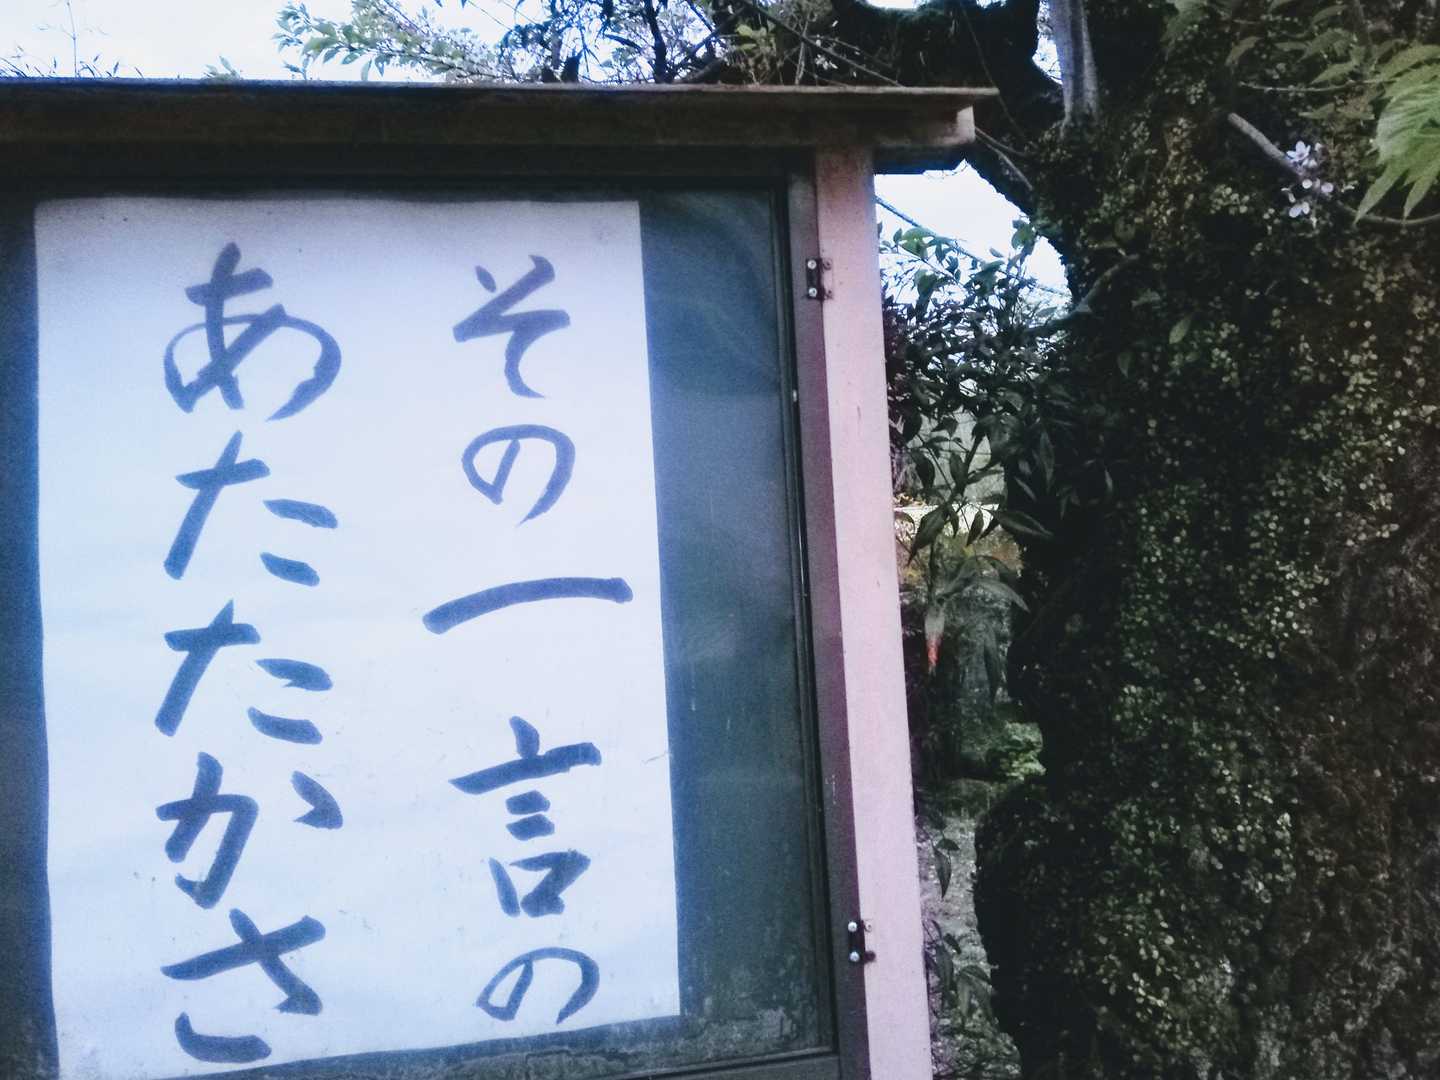 その一言の
あたたかさ